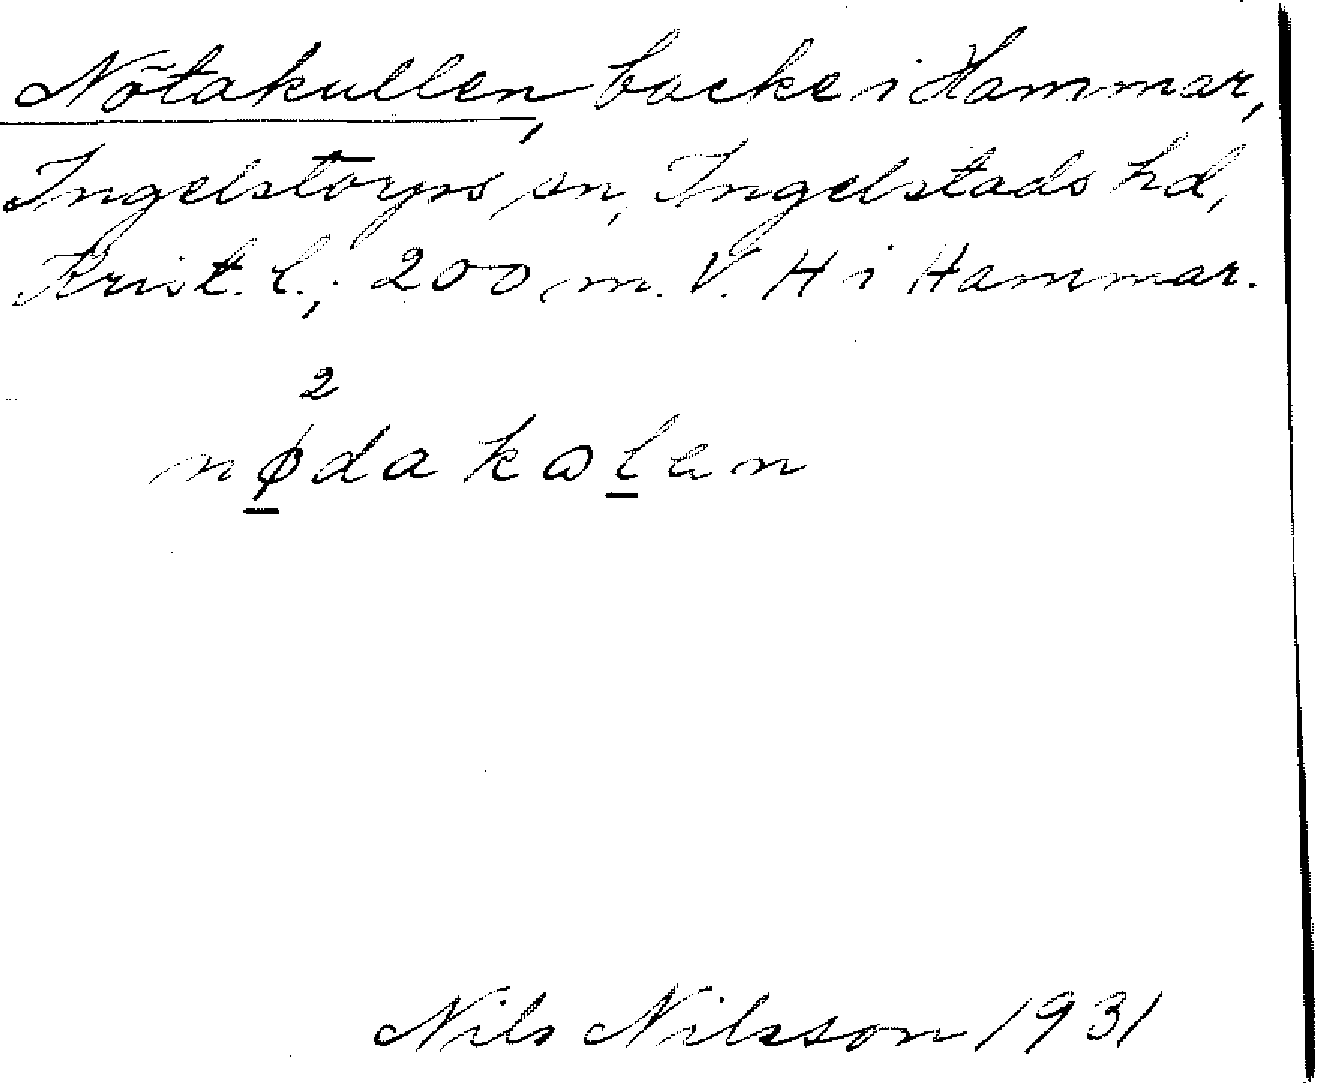 Nötakullen, backe i Hammar,
Ingelstorps sn, Ingelstads hd,
Krist. l.; 200 m. V. H i Hammar.
2
nødakωlen
Nils Nilsson 1931